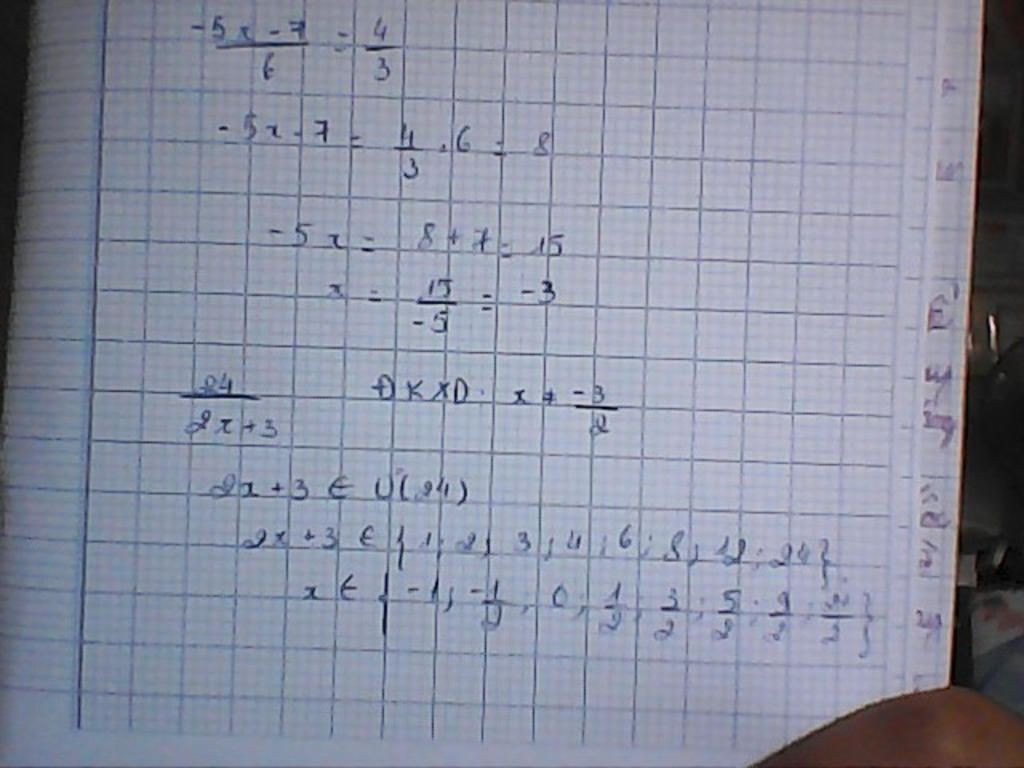 -5x - 7 / 6 = 4 / 3
-5x - 7 = 4 / 3 . 6 = 8
-5x = 8 + 7 = 15
x = 15 / -5 = -3
24 / 2x + 3 ĐKXĐ: x ≠ -3 / 2
2x + 3 ∈ Ư(24)
2x + 3 ∈ { 1; 2; 3; 4; 6; 8; 12; 24}
x ∈ { -1; -1/2; 0; 1/2; 3/2; 5/2; 9/2; 21/2 }